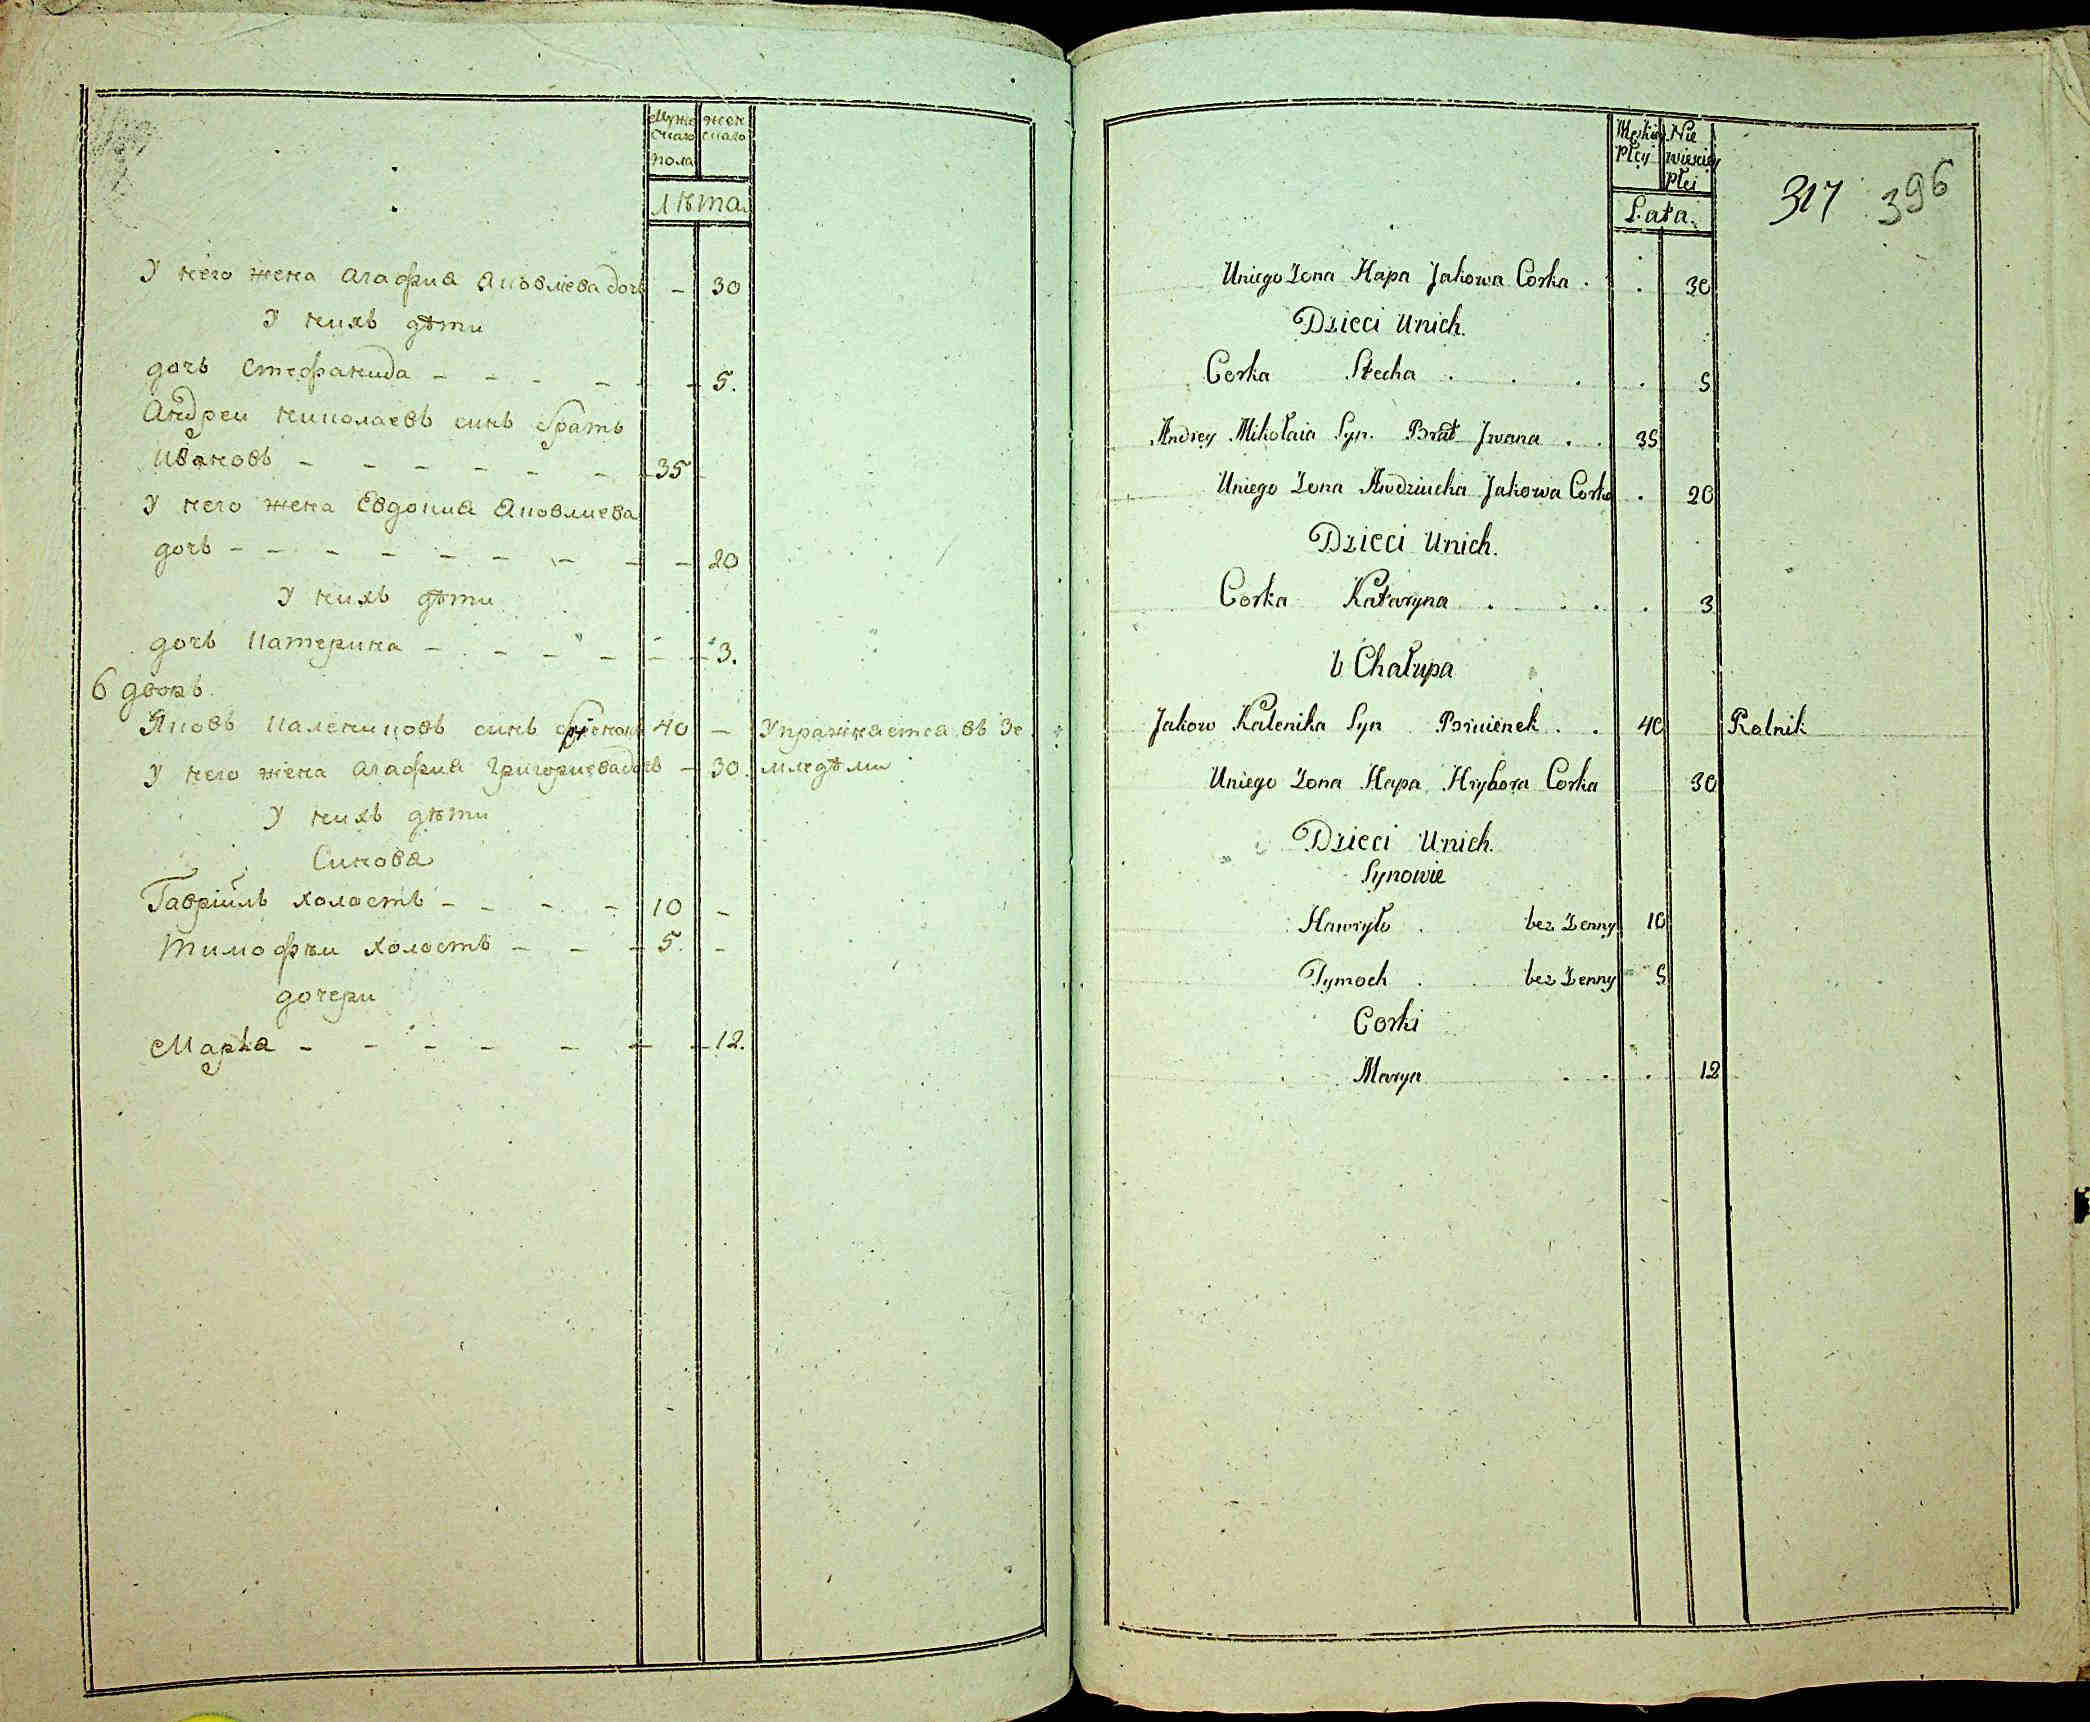 Муже
скаго
пола
жен
скаго
лѣта.
У него жена Агафия Яковлева дочь - 30
У нихъ дѣти
дочь Стефанида - - - - - - 5.
Андреи Николаевъ синъ братъ
Ивановъ - - - - - - - 35
У него жена Евдокия Яковлиева
дочь - - - - - - - - - 20
У нихъ дѣти
дочь Катерина - - - - - - 3.
6 дворъ.
Яковъ Каленіковъ синъ 40 - Упражняется въ Зе
У него жена Агафия Григориева дочь - 30. мледѣли
У нихъ дѣти
Синовя
Гавріилъ холостъ - - - - 10 -
Тимофѣи холостъ - - - 5. -
дочери
Маръя - - - - - - - 12.
Męskiey
Płey
Nie
wiesciey
Płei
Lata.
317 396
Uniego Żona Hapa Jakowa Corka . . 30
Dzieci Unich.
Corka Stecha . . . . 5
Andrey Mikołaia Syn. Brat Jwana . . 35
Uniego Żona Awdziucha Jakowa Corka . 20
Dzieci Unich.
Corka Kataryna . . . . 3
6 Chałupa
Jakow Kalenika Syn . . 40 Rolnik
Uniego Żona Hapa Hryhora Corka 30
Dzieci Unich.
Synowie
Hawryło . bez Żenny 10
Tymoch . bez Żenny 5
Corki
Marya . . . 12